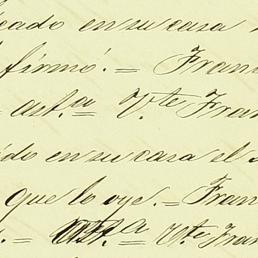 cado en su casa
firmó. = Fran
= ast.a V.te Fran
do en su casa el
que lo oye. = Fran
. = Ast.a = V.te Fran